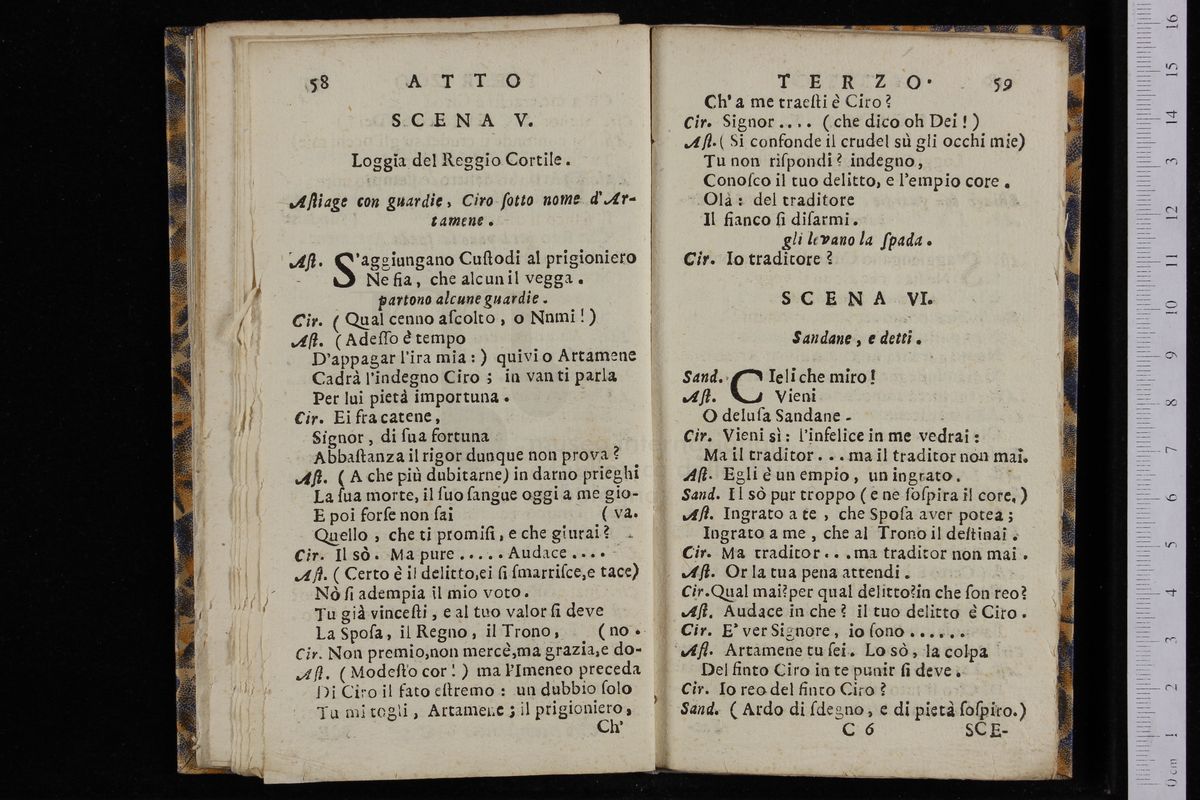 58 ATTO
SCENA V.
Loggia del Reggio Cortile.
Aſtiage con guardie, Ciro ſotto nome d'Ar-
tamene.
Aſt. S'aggiungano Cuſtodi al prigioniero
Ne ſia, che alcun il vegga.
partono alcune guardie.
Cir. (Qual cenno aſcolto, o Nnmi!)
Aſt. (Adeſſo è tempo
D'appagar l'ira mia:) quivi o Artamene
Cadrà l'indegno Ciro; in van ti parla
Per lui pietà importuna.
Cir. Ei fra catene,
Signor, di ſua fortuna
Abbaſtanza il rigor dunque non prova?
Aſt. (A che più dubitarne) in darno prieghi
La ſua morte, il ſuo ſangue oggi a me gio-
E poi forſe non ſai (va.
Quello, che ti promiſi, e che giurai?
Cir. Il sò. Ma pure ..... Audace ....
Aſt. (Certo è il delitto,ei ſi ſmarriſce,e tace)
Nò ſi adempia il mio voto.
Tu già vinceſti, e al tuo valor ſi deve
La Spoſa, il Regno, il Trono, (no.
Cir. Non premio,non mercè,ma grazia,e do-
Aſt. (Modeſto cor!) ma l'Imeneo preceda
Di Ciro il fato eſtremo: un dubbio ſolo
Tu mi togli, Artamene; il prigioniero,
Ch'
TERZO. 59
Ch' a me traeſti è Ciro?
Cir. Signor .... (che dico oh Dei!)
Aſt. (Si confonde il crudel sù gli occhi mie)
Tu non riſpondi? indegno,
Conoſco il tuo delitto, e l'empio core.
Olà: del traditore
Il fianco ſi diſarmi.
gli levano la ſpada.
Cir. Io traditore?
SCENA VI.
Sandane, e detti.
Sand. CIeli che miro!
Aſt. Vieni
O deluſa Sandane -
Cir. Vieni sì: l'infelice in me vedrai:
Ma il traditor ... ma il traditor non mai.
Aſt. Egli è un empio, un ingrato.
Sand. Il sò pur troppo (e ne ſoſpira il core.)
Aſt. Ingrato a te, che Spoſa aver potea;
Ingrato a me, che al Trono il deſtinai.
Cir. Ma traditor ... ma traditor non mai.
Aſt. Or la tua pena attendi.
Cir. Qual mai?per qual delitto?in che ſon reo?
Aſt. Audace in che? il tuo delitto è Ciro.
Cir. E' ver Signore, io ſono ......
Aſt. Artamene tu ſei. Lo sò, la colpa
Del finto Ciro in te punir ſi deve.
Cir. Io reo del finto Ciro?
Sand. (Ardo di ſdegno, e di pietà ſoſpiro.)
C 6 SCE-
0 cm 1 2 3 4 5 6 7 8 9 10 11 12 13 14 15 16